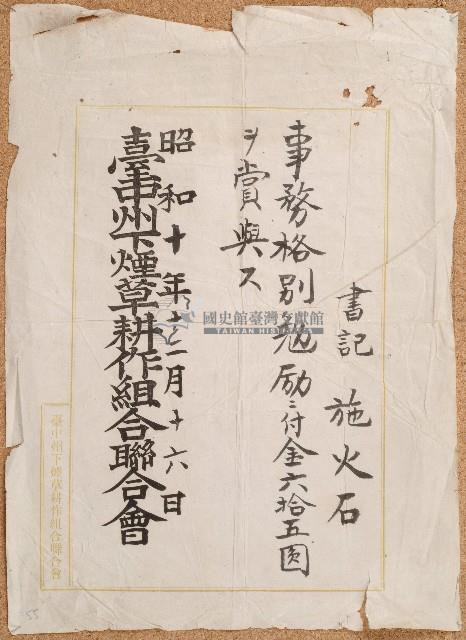 書記 施火石
事務格別勉励ニ付金六拾五圓
ヲ賞與ス
昭和十年十二月十六日
臺中州下煙草耕作組合聯合會
臺中州下煙草耕作組合聯合會
國史館臺灣文獻館
TAIWAN HISTORICA
55